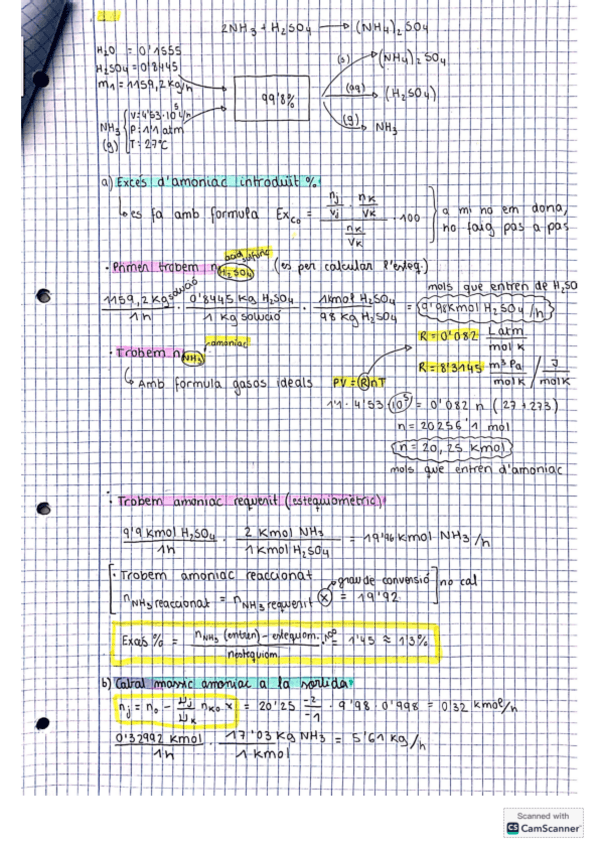 2NH3 + H2SO4 → (NH4)2SO4
H2O = 0'1555
H2SO4 = 0'8445
m1 = 1159,2 kg/h
NH3 (g) { V = 4'53·10⁵ L/h
P = 1'1 atm
T = 27°C
99'8%
(s) → (NH4)2SO4
(aq) → (H2SO4)
(g) → NH3
a) Excés d'amoniac introduït %
↳ es fa amb formula Ex_CO = (nj/νj · nK/νK) / (nK/νK) · 100 } a mi no em dona, ho faig pas a pas
àcid sulfúric
· Primer trobem n H2SO4 (es per calcular l'esteq.)
mols que entren de H2SO
1159,2 kg solució / 1h · 0'8445 Kg H2SO4 / 1 Kg solució · 1kmol H2SO4 / 98 Kg H2SO4 = 9'98 Kmol H2SO4/h
R = 0'082 L atm / mol K
amoniac
· Trobem n NH3
R = 8'3145 m³ Pa / mol K / J / mol K
↳ Amb formula gasos ideals PV = (R)nT
1'1 · 4'53 (10⁵) = 0'082 n (27 + 273)
n = 20256'1 mol
n = 20,25 Kmol
mols que entren d'amoniac
· Trobem amoniac requerit (estequiomètric):
9'9 kmol H2SO4 / 1h · 2 Kmol NH3 / 1 Kmol H2SO4 = 19'96 kmol NH3/h
· Trobem amoniac reaccionat
grau de conversió
no cal
nNH3 reaccionat = nNH3 requerit (x) = 19'92
Excés % = nNH3 (entren) - estequiom. / nestequiom · 100 = 1'45 ≈ 1'3%
b) Cabal massic amoniac a la sortida:
nj = n0 - νj/νK nK0 x = 20'25 -2/-1 · 9'98 · 0'998 = 0'32 kmol/h
0'32992 Kmol / 1h · 17'03 Kg NH3 / 1 Kmol = 5'61 kg/h
Scanned with
CS CamScanner